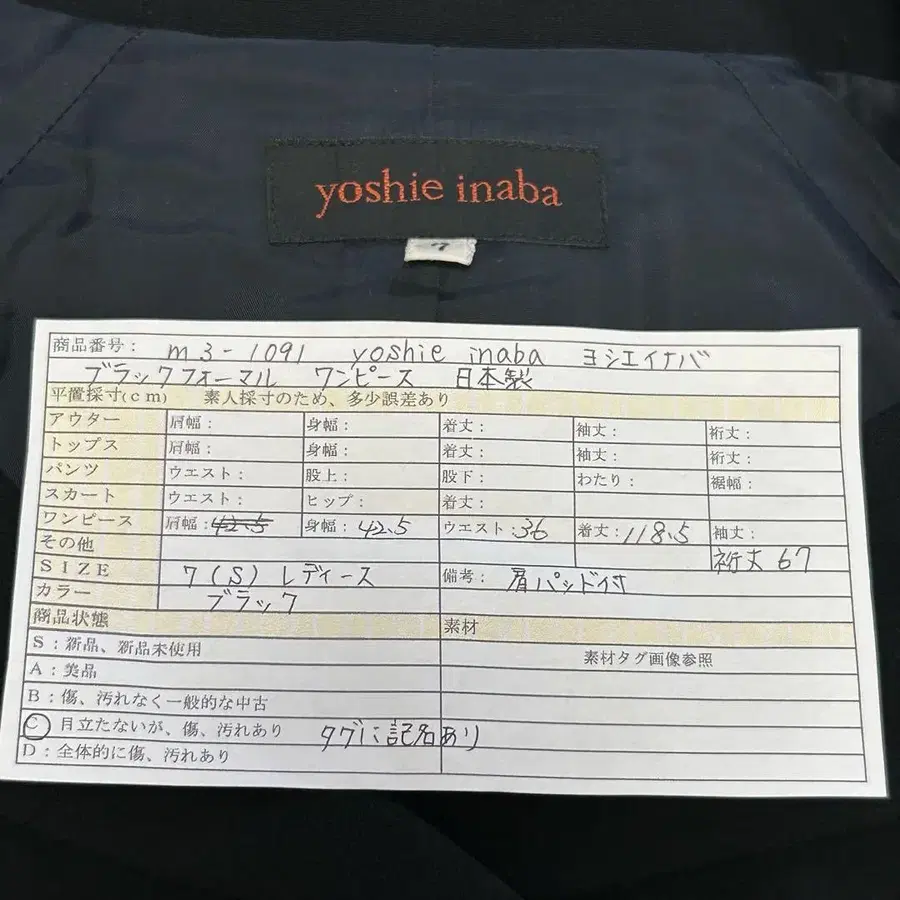 yoshie inaba
7
商品番号: m3-1091 yoshie inaba ヨシエイナバ
ブラックフォーマル ワンピース 日本製
平置採寸(cm) 素人採寸のため、多少誤差あり
アウター 肩幅: 身幅: 着丈: 袖丈: 裄丈:
トップス 肩幅: 身幅: 着丈: 袖丈: 裄丈:
パンツ ウエスト: 股上: 股下: わたり: 裾幅:
スカート ウエスト: ヒップ: 着丈:
ワンピース 肩幅:42.5 身幅:42.5 ウエスト:36 着丈:118.5 袖丈:
その他 裄丈 67
SIZE 7(S) レディース 備考: 肩パッド付
カラー ブラック
商品状態 素材
S:新品、新品未使用 素材タグ画像参照
A:美品
B:傷、汚れなく一般的な中古
C:目立たないが、傷、汚れあり タグに記名あり
D:全体的に傷、汚れあり